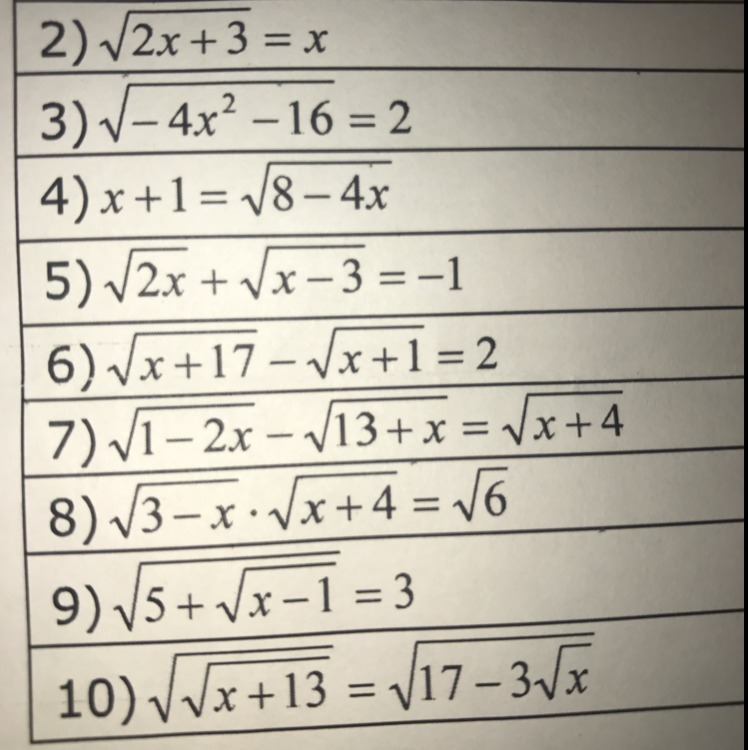 2) √(2x + 3) = x
3) √(– 4x² – 16) = 2
4) x + 1 = √(8 – 4x)
5) √(2x) + √(x – 3) = –1
6) √(x + 17) – √(x + 1) = 2
7) √(1 – 2x) – √(13 + x) = √(x + 4)
8) √(3 – x) · √(x + 4) = √6
9) √(5 + √(x – 1)) = 3
10) √(√(x + 13)) = √(17 – 3√x)